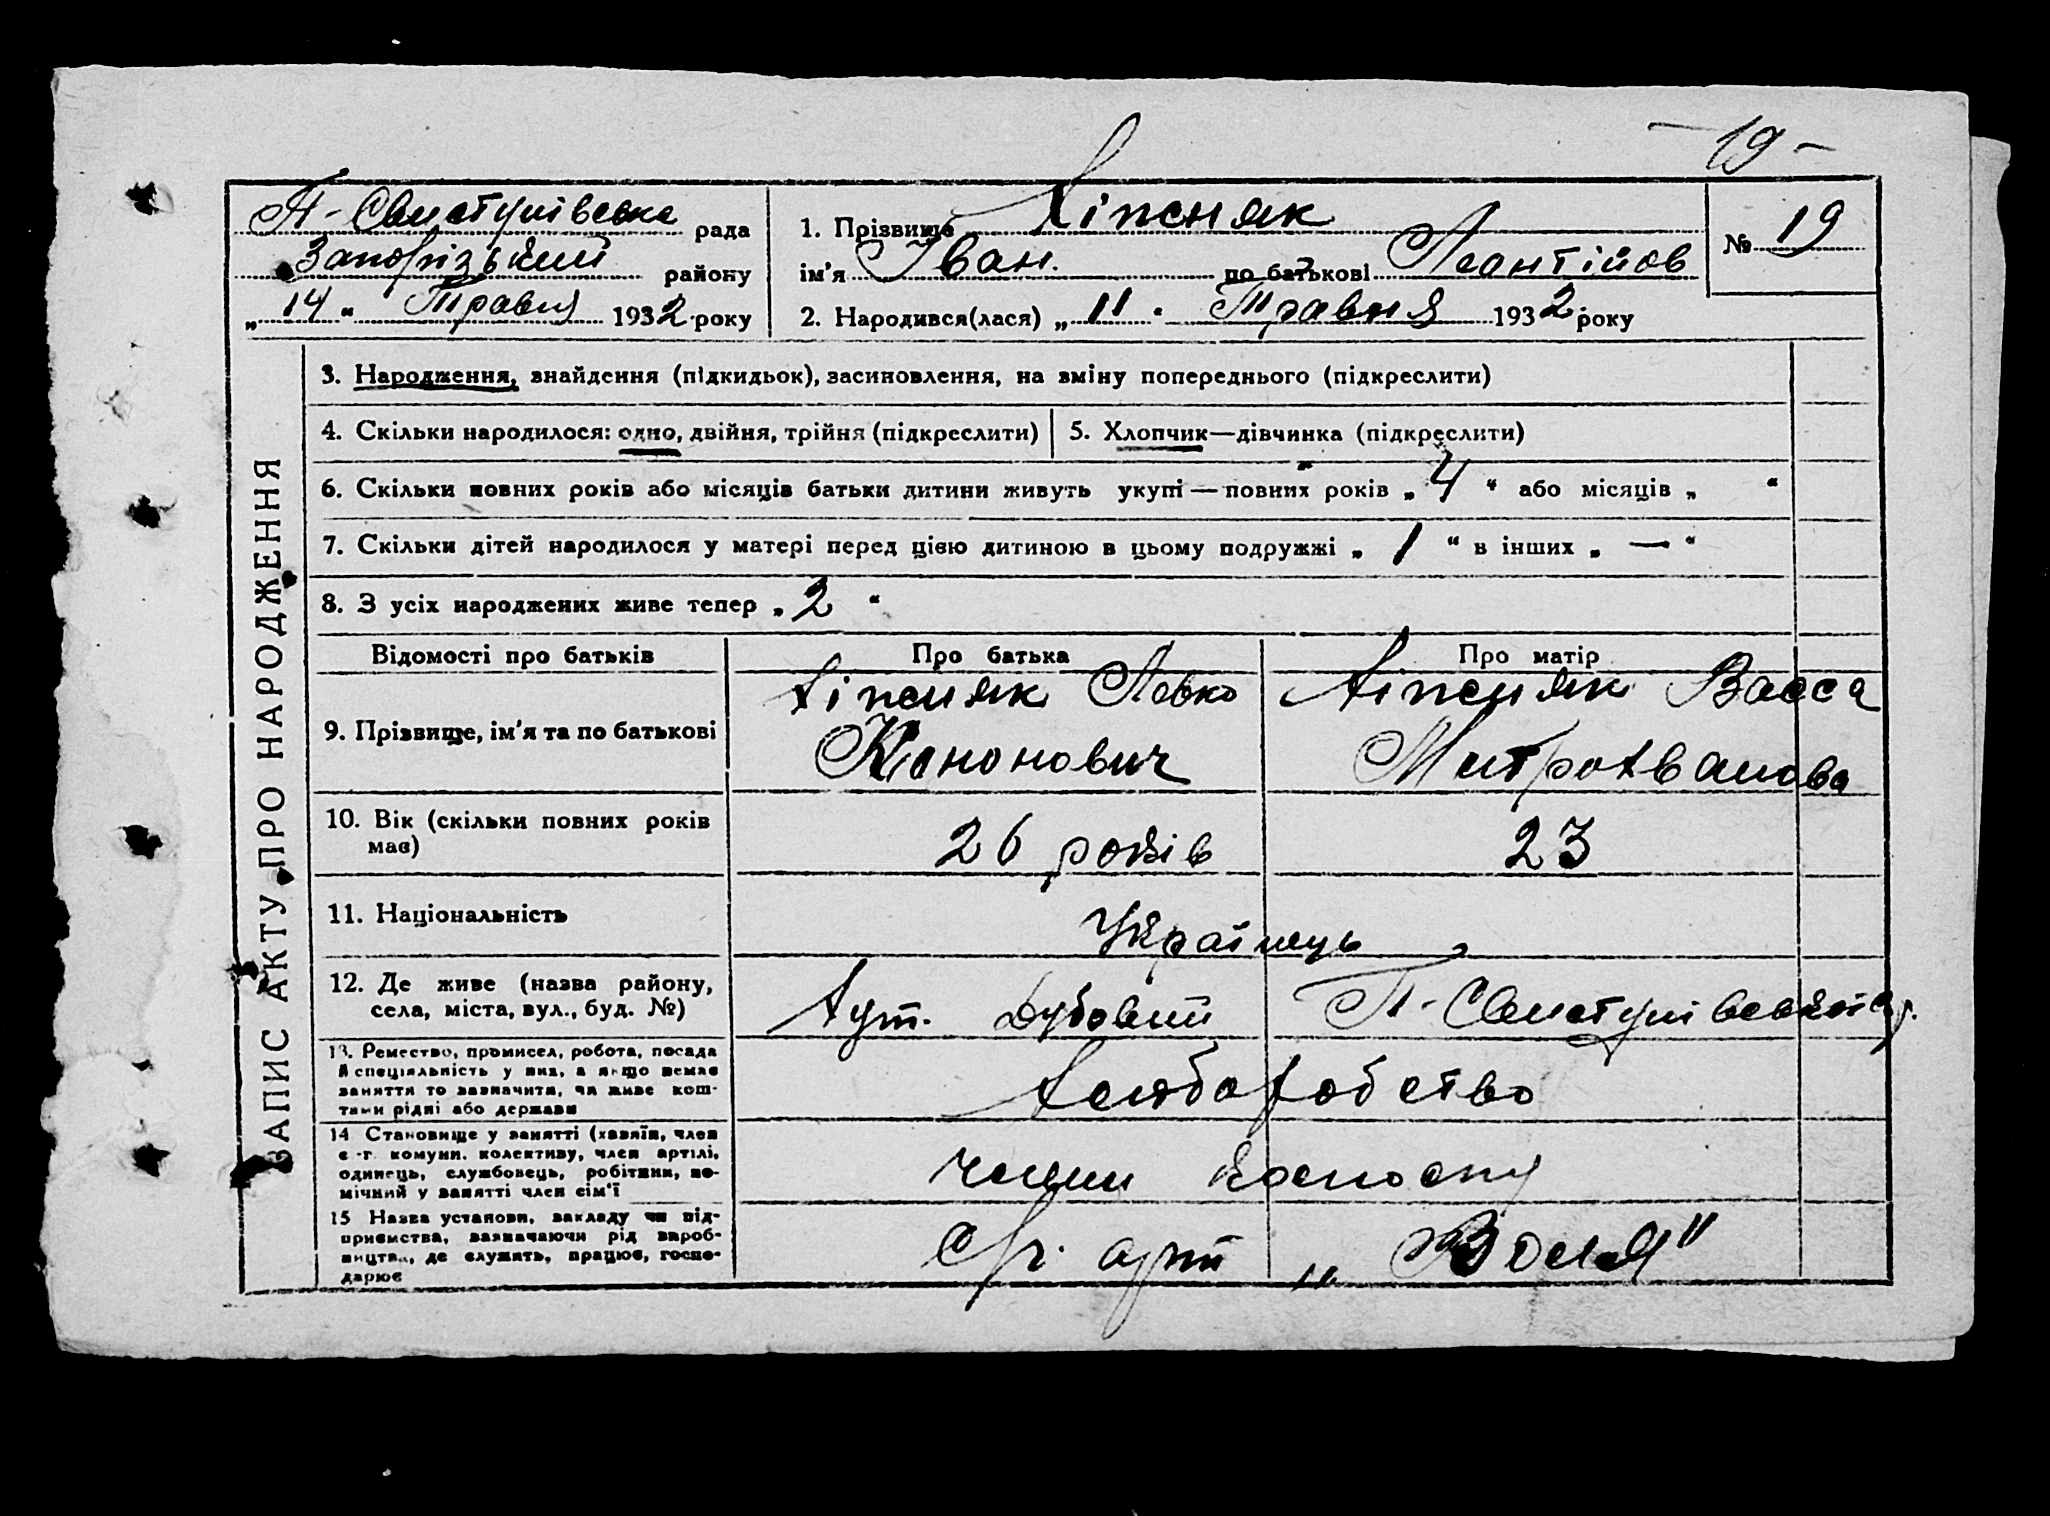 - 19 -
П-Свистунівська рада
Запорізький району
„14“ Травня 1932 року
1. Прізвище Хіпсняк
ім'я Іван по батькові Леонтійов
2. Народився(лася) „11“ Травня 1932 року
№ 19
ЗАПИС АКТУ ПРО НАРОДЖЕННЯ
3. Народження, знайдення (підкидьок), засиновлення, на зміну попереднього (підкреслити)
4. Скільки народилося: одно, двійня, трійня (підкреслити)
5. Хлопчик—дівчинка (підкреслити)
6. Скільки повних років або місяців батьки дитини живуть укупі — повних років „4“ або місяців „ “
7. Скільки дітей народилося у матері перед цією дитиною в цьому подружжі „1“ в інших „—“
8. З усіх народжених живе тепер „2“
Відомості про батьків Про батька Про матір
9. Прізвище, ім'я та по батькові
Хіпсняк Левко
Кононович
Хіпсняк Васса
Митрохванова
10. Вік (скільки повних років
має)
26 років 23
11. Національність
Українець
12. Де живе (назва району,
села, міста, вул., буд. №)
Хут. Дубовий П-Свистунівської с/р.
13. Ремество, промисел, робота, посада
й спеціяльність у них, а якщо немає
заняття то зазначити, чи живе кош-
тами рідні або держави
Хліборобство
14 Становище у занятті (хазяїн, член
с.-г. комуни, колективу, член артілі,
одинець, службовець, робітник, по-
мічний у занятті член сім'ї
члени колгоспу
15 Назва установи, закладу чи під-
приємства, зазначаючи рід вироб-
ництва, де служить, працює, госпо-
дарює
С/г. арт „Воля"